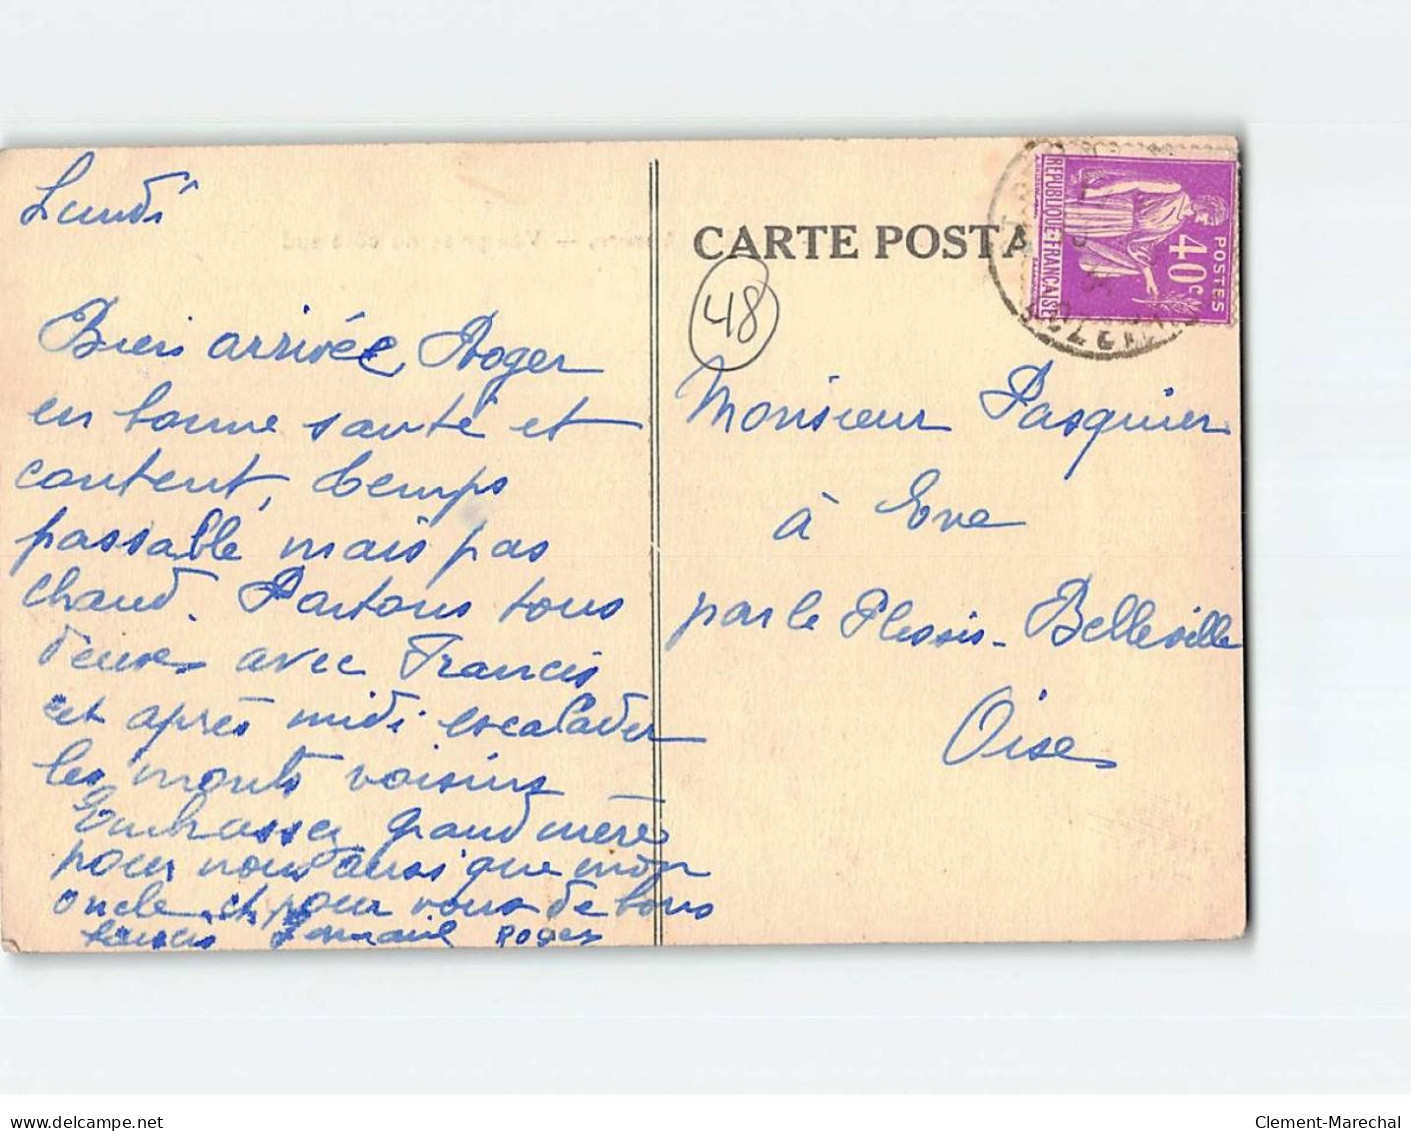 Lundi
Bien arrivée, Roger
en bonne santé et
content, temps
passable mais pas
chaud. Partons tous
deux avec Francis
et après midi escalader
les monts voisins
Embrassez grand mère
pour nous ainsi que mon
oncle et pour vous de bons
baisers Roger
CARTE POSTA
48
REPUBLIQUE FRANÇAISE
POSTES
40c
LOZERE
Monsieur Pasquier
à Eve
par le Plessis-Belleville
Oise
delcampe.net
Clement-Marechal